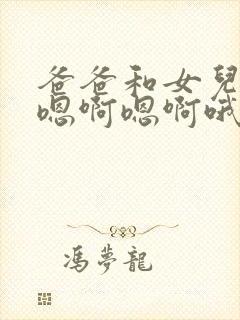 爸爸和女兒
嗯啊嗯啊哦
馮夢龍